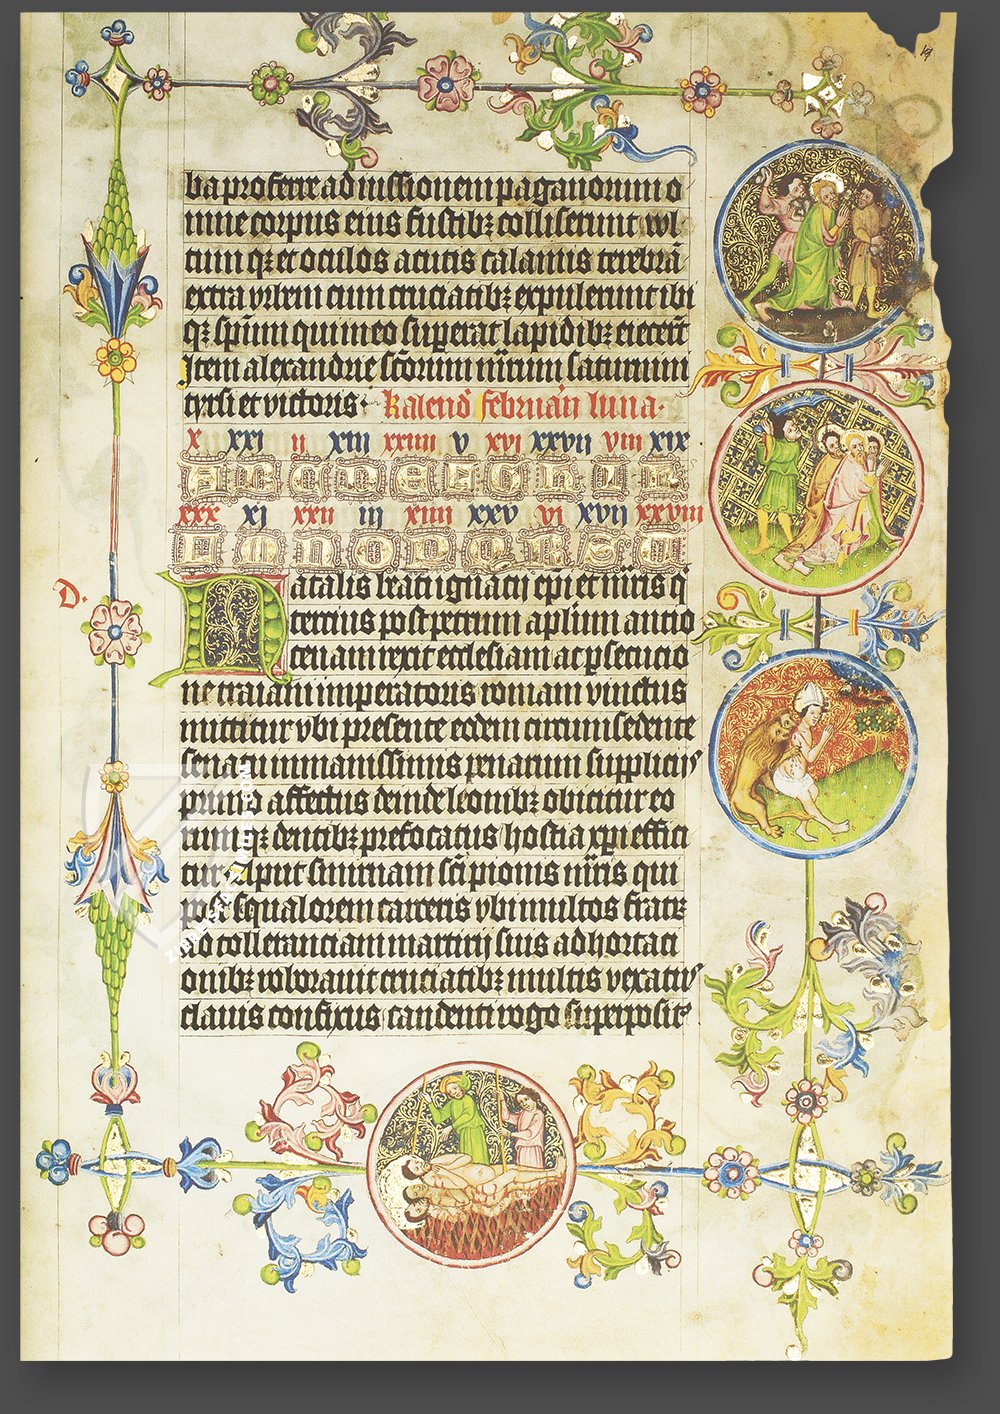 ba proferre ad iussionem paganorum o
mne corpus eius fustibꝫ colliserunt wl
tum qꝫ et oculos acutis calamis terebrā
extra urbem cum cruciatibꝫ expulerunt ibi
qꝫ sp̄um qui in eo superat lapidibꝫ eiecer̄t
Item alexandrie sc̄orum m̄rum saturnini
tyrsi et victoris · Kalend̄ februarij luna ·
x xxi ii xiii xxiiii v xvi xxvii viii xix
A B C D E F G H I K
xxx xi xxii iii xiiii xxv vi xvii xxviii
M N O P Q R S
D.
Natalis beati ignacij ep̄i et m̄ris q̄
tercius post petrum apl̄um antio
cenam rexit ecclesiam ac ꝑsecucio
ne traiani imperatoris romam vinctus
mittitur ubi presente eodem circumsedente
senatu inmanissimis penarum supplicijs
primo affectus deinde leonibꝫ obicitur eo
rum qꝫ dentibꝫ prefocatus hostia xp̄i effici
tur Aput smirnam sc̄i pionis m̄ris qui
post squalorem carceris ubi multos fratrꝫ
ad colleranciam martirij suis adhortaci
onibꝫ roboravit cruciatibꝫ multis vexatus
clavis confixus candenti rogo superposit9